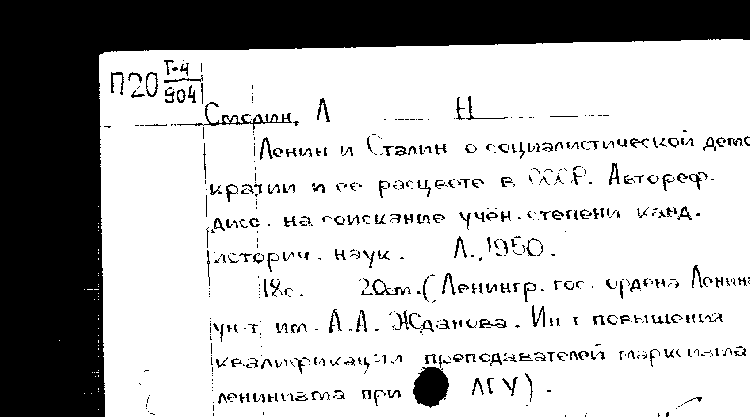 П20 Г-4
904
Смолин, Л Н
Ленин и Сталин о социалистической демо
кратии и ее расцвете в СССР. Автореф.
дисс. на соискание учён. степени канд.
историч. наук. Л., 1950.
18с. 20см. (Ленингр. гос. ордена Ленина
ун-т им. А.А. Жданова. Ин-т повышения
квалификации преподавателей марксизма
ленинизма при ЛГУ).